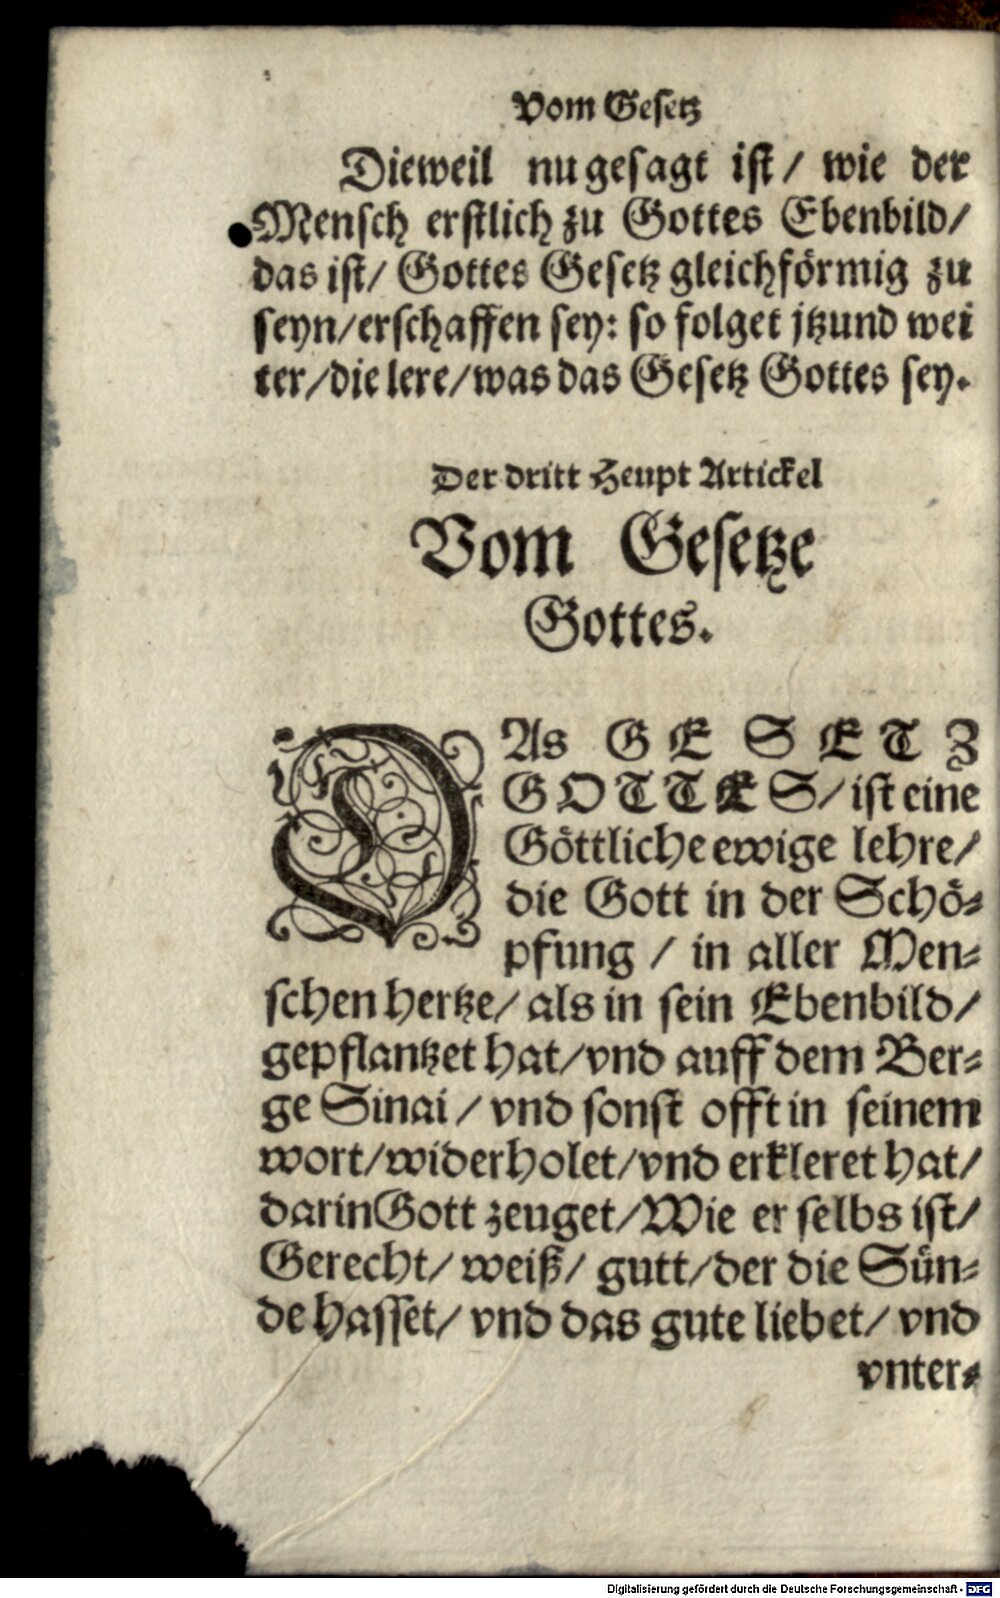 Vom Gesetz
Dieweil nu gesagt ist/ wie der
Mensch erstlich zu Gottes Ebenbild/
das ist/ Gottes Gesetz gleichförmig zu
seyn/erschaffen sey: so folget jtzund wei
ter/die lere/was das Gesetz Gottes sey.
Der dritt Heupt Artickel
Vom Gesetze
Gottes.
DAs GESETZ
GOTTES/ist eine
Göttliche ewige lehre/
die Gott in der Schö-
pfung / in aller Men-
schen hertze/ als in sein Ebenbild/
gepflantzet hat/vnd auff dem Ber-
ge Sinai / vnd sonst offt in seinem
wort/widerholet/vnd erkleret hat/
darin Gott zeuget/Wie er selbs ist/
Gerecht/ weiß/ gutt/der die Sün-
de hasset/ vnd das gute liebet/ vnd
vnter-
Digitalisierung gefördert durch die Deutsche Forschungsgemeinschaft - DFG